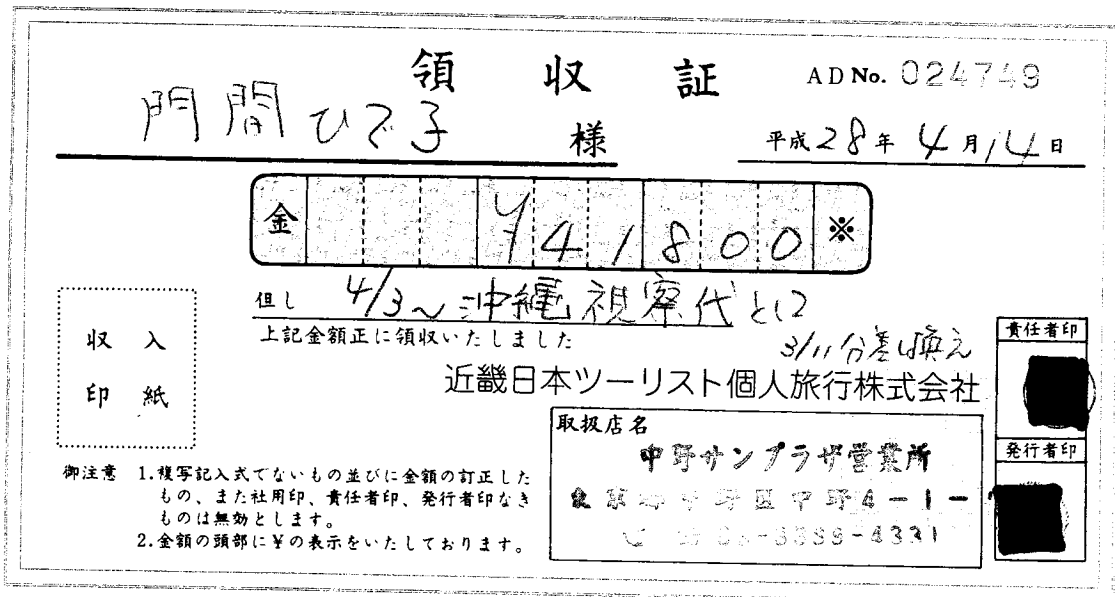 領収証
AD No. 024749
門間ひで子 様
平成28年4月14日
金 ¥41800※
但し 4/3~沖縄視察代として
上記金額正に領収いたしました
3/11分差し換え
収入
印紙
近畿日本ツーリスト個人旅行株式会社
責任者印
取扱店名
中野サンプラザ営業所
東京都中野区中野4-1-
発行者印
御注意 1.複写記入式でないもの並びに金額の訂正した
もの、また社用印、責任者印、発行者印なき
ものは無効とします。
2.金額の頭部に¥の表示をいたしております。